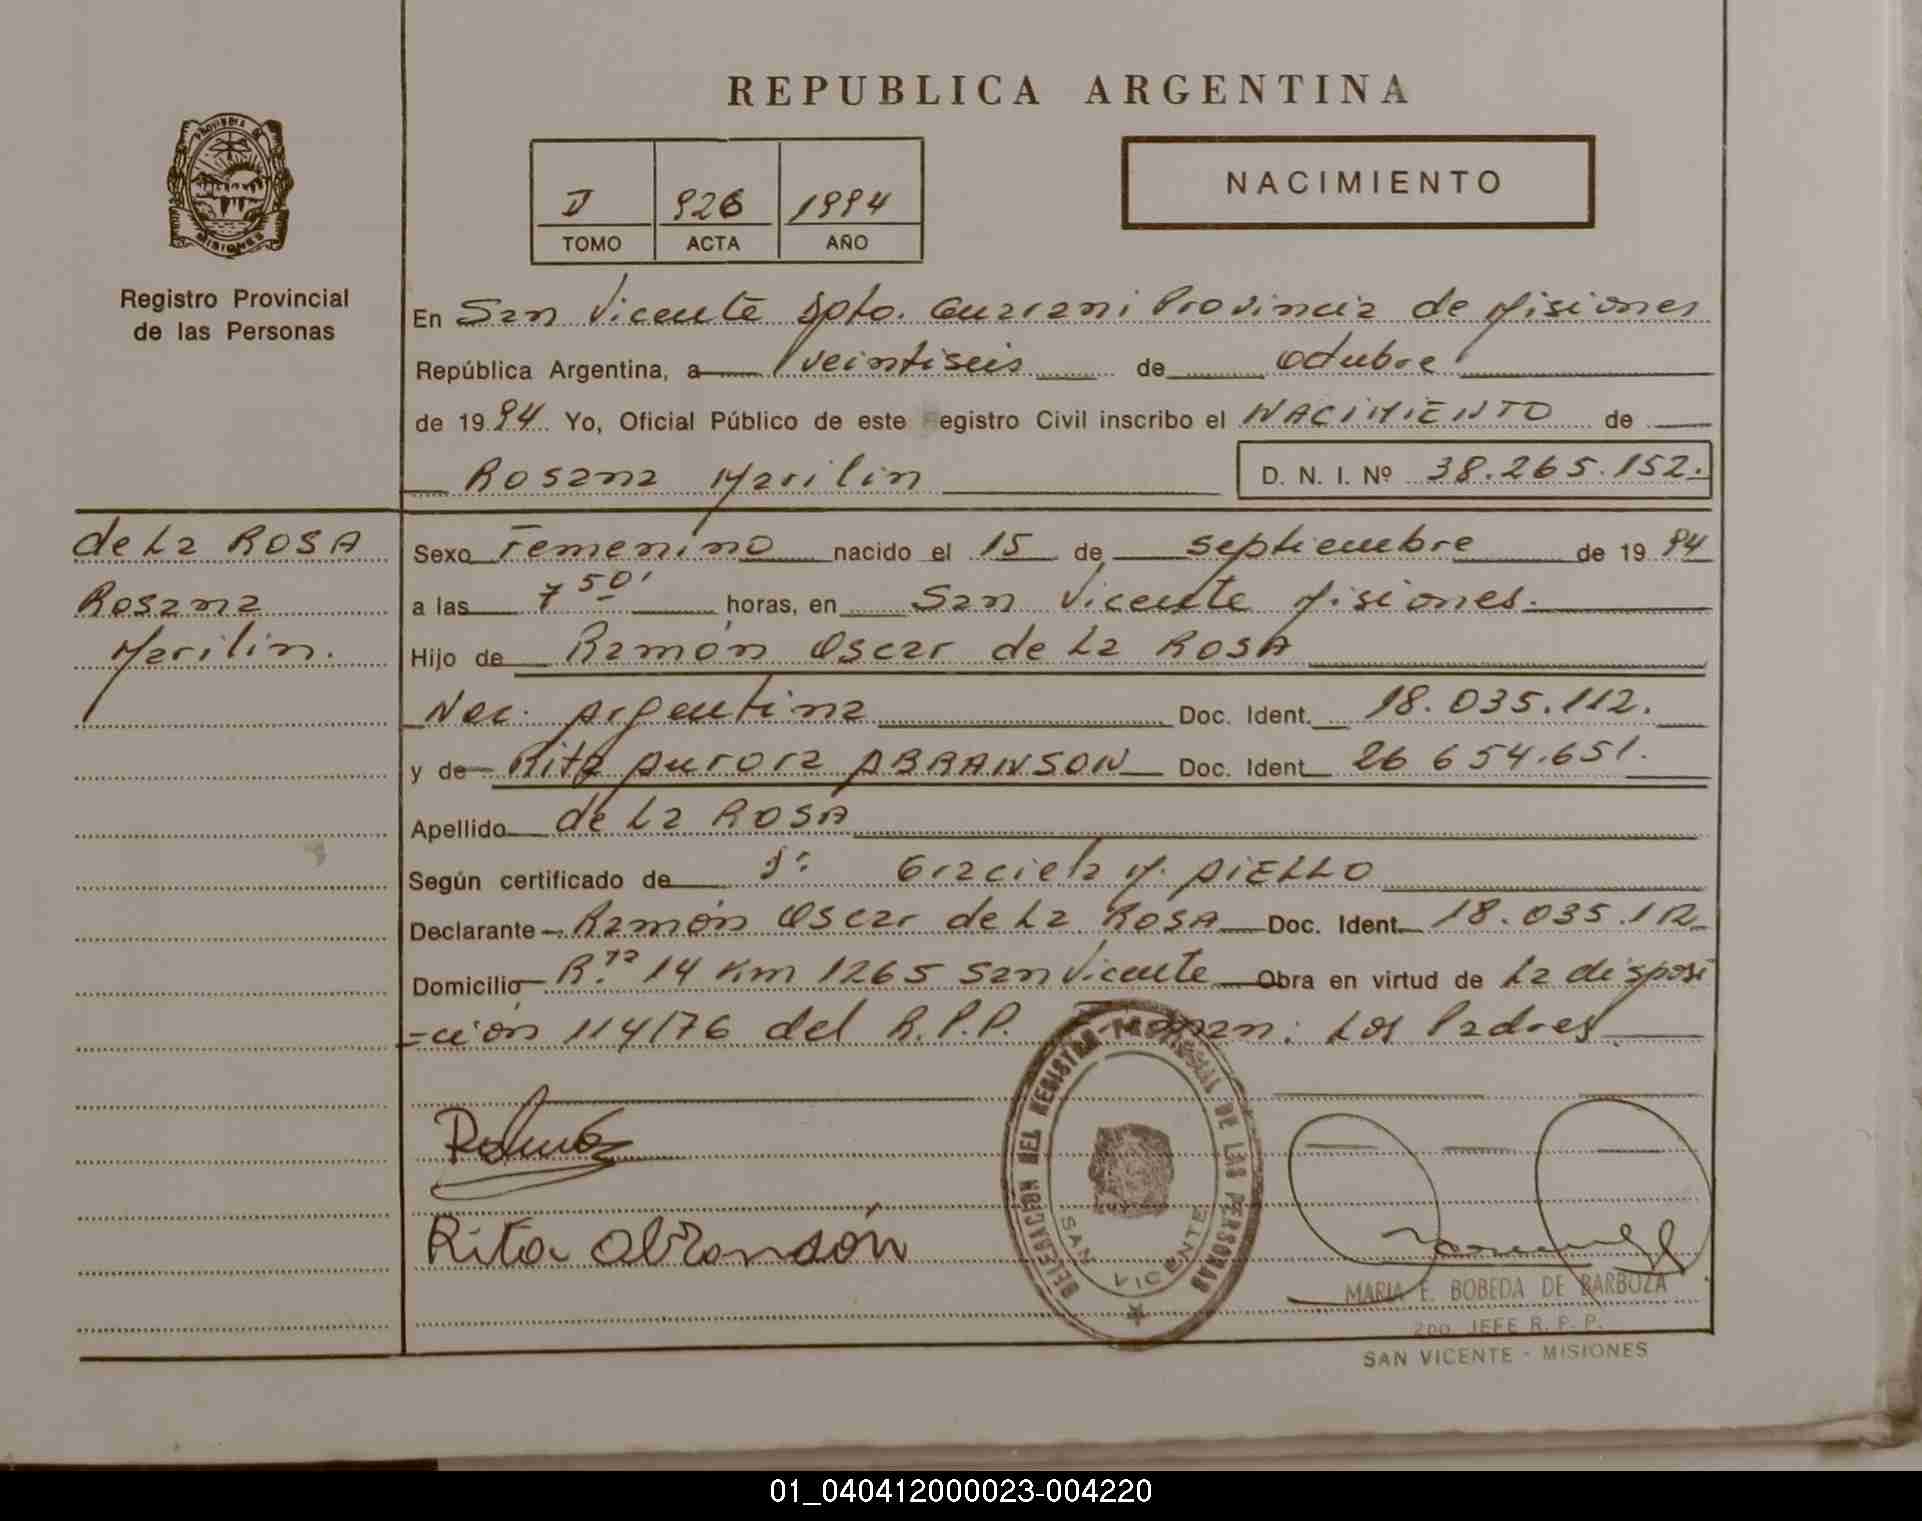 REPUBLICA ARGENTINA
PROVINCIA DE
MISIONES
Registro Provincial
de las Personas
926 1994
TOMO ACTA AÑO
NACIMIENTO
En San Vicente Dpto. Guarani Provincia de Misiones
República Argentina, a veintiseis de octubre
de 1994 Yo, Oficial Público de este Registro Civil inscribo el NACIMIENTO de
Rosana Marilin D. N. I. Nº 38.265.152.
de La ROSA
Rosana
Marilin.
Sexo Femenino nacido el 15 de septiembre de 1994
a las 7 50' horas, en San Vicente Misiones.
Hijo de Ramón Oscar de La ROSA
Nac. Argentina Doc. Ident. 18.035.112.
y de Rita Aurora ABRANSON Doc. Ident. 26 654.651.
Apellido de La ROSA
Según certificado de Graciela M. AIELLO
Declarante Ramón Oscar de La ROSA Doc. Ident. 18.035.112
Domicilio R.ta 14 Km 1265 San Vicente Obra en virtud de La disposi
-ción 114/76 del R.P.P. Firman: Los Padres
Rita Abransón
DELEGACION DEL REGISTRO PROVINCIAL DE LAS PERSONAS
SAN VICENTE
MARIA E. BOBEDA DE BARBOZA
2DO. JEFE R. P. P.
SAN VICENTE - MISIONES
01_040412000023-004220